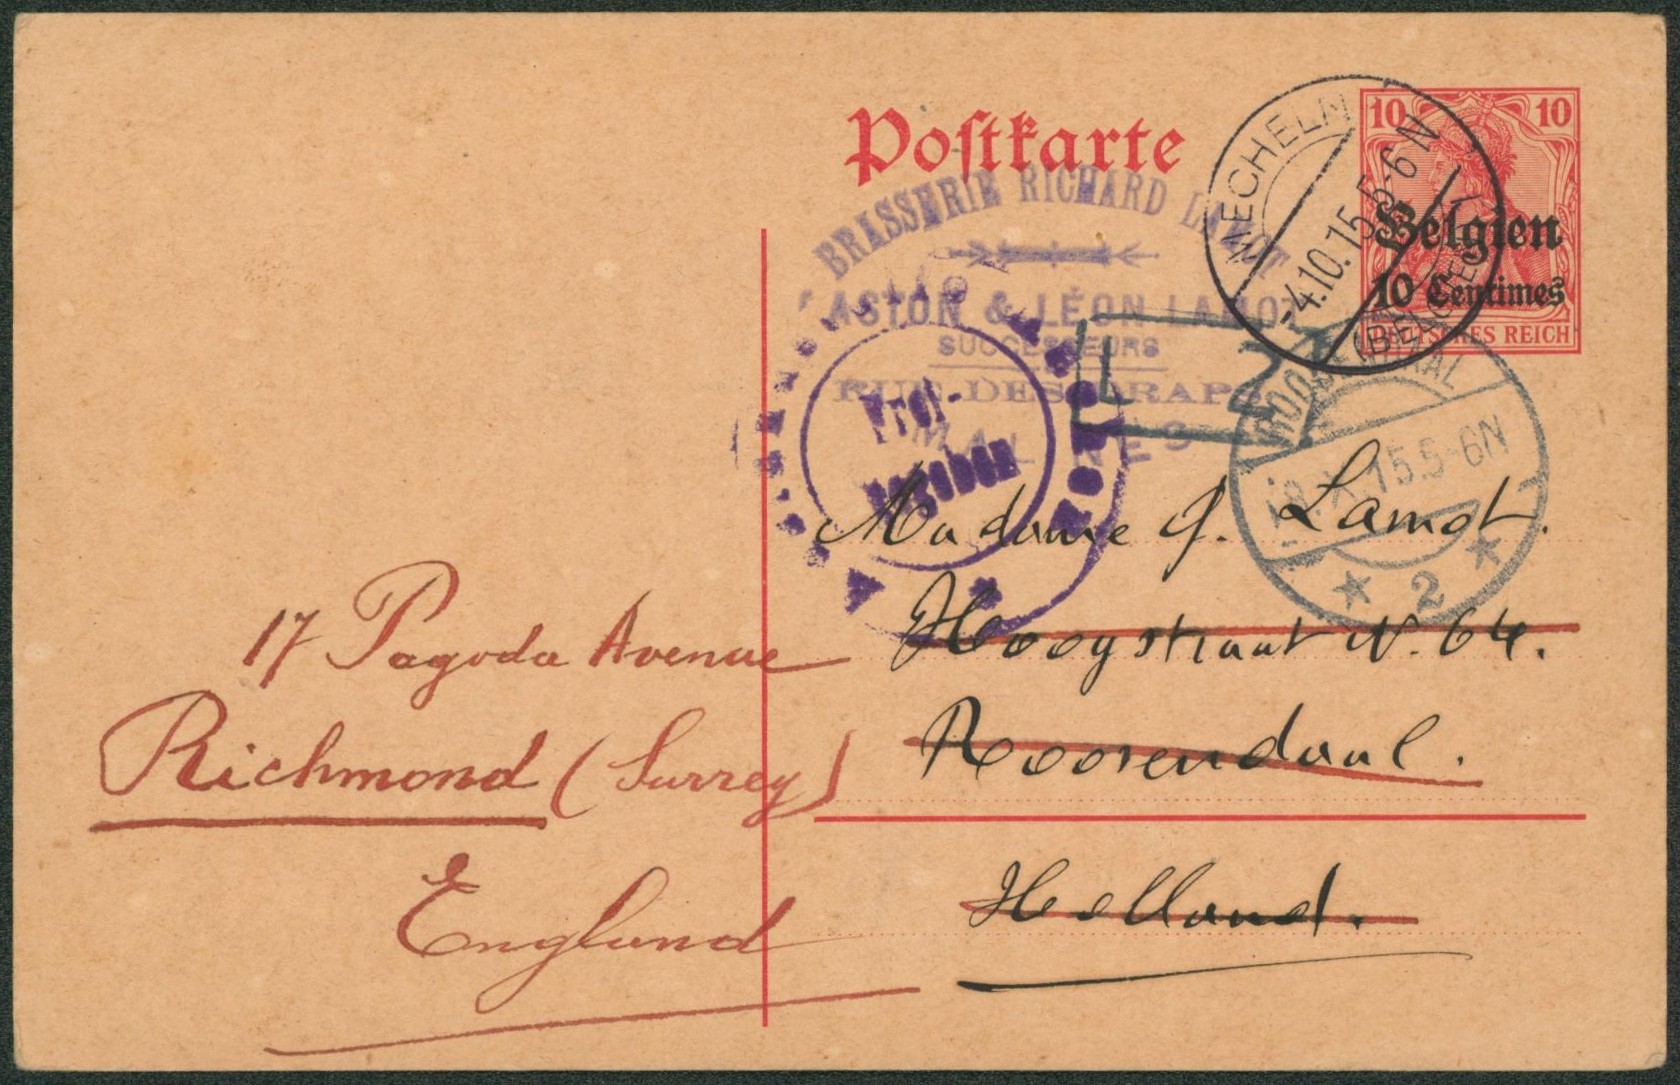 Postkarte
10 10
Belgien
10 Centimes
DEUTSCHES REICH
MECHELN
-4.10.15.5-6 N
BRASSERIE RICHARD LAMOT
GASTON & LÉON LAMOT
SUCCESSEURS
RUE DES DRAPS
MALINES
L 2
15.5-6N
2
Madame J. Lamot.
Hoogstraat N. 64.
Roosendaal.
Holland.
17 Pagoda Avenue
Richmond (Surrey)
England